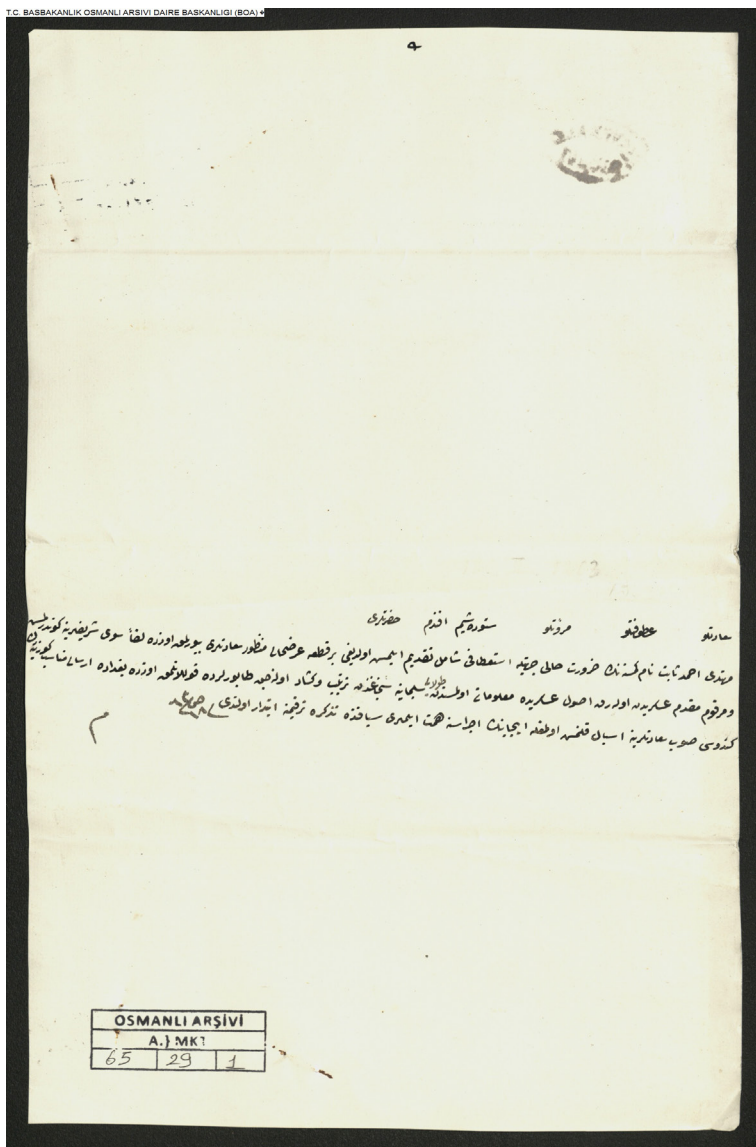 T.C. BASBAKANLIK OSMANLI ARSIVI DAIRE BASKANLIGI (BOA)
سعادتلو عطوفتلو مروتلو ستوده شیم افندم حضرتلری
مهتدی احمد ثابت نام کسنه نك ضرورت حالی جهتیله استعطافی شامل تقدیم ایلمش اولدیغی بر قطعه عرضحالی منظور سعادتلری بیورلمق اوزره لفا سوی شریفلرینه كوندرلمش
ومرقوم مقدم عسکریدن اوله رق اصول عسکریه ده معلوماتی اولمسندن طولایی سلیمانیه سنجاغندن ترتیب وكشاد اولنه جق طابورلرده قوللانلمق اوزره بغداده ارسالی مناسب كورینه رك
كندوسی صوب سعادتلرینه اسبال قلنمش اولمغله ایجابنك اجراسنه همت ایلملری سیاقنده تذکره ترقیمنه ابتدار اولندی
م
OSMANLI ARŞİVİ
A.} MKT
65 29 1